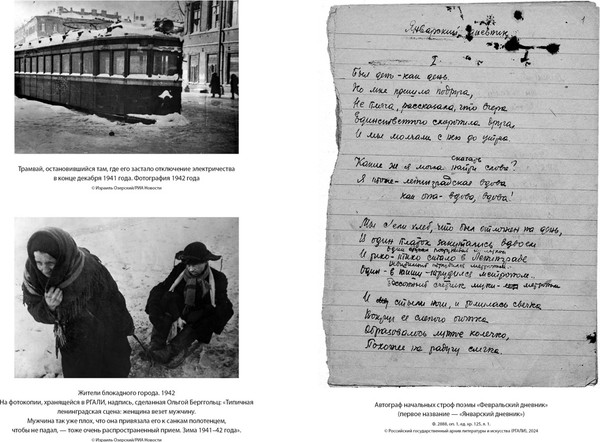 Трамвай, остановившийся там, где его застало отключение электричества
в конце декабря 1941 года. Фотография 1942 года
© Израиль Озерский/РИА Новости
Жители блокадного города. 1942
На фотокопии, хранящейся в РГАЛИ, надпись, сделанная Ольгой Берггольц: «Типичная
ленинградская сцена: женщина везет мужчину.
Мужчина так уже плох, что она привязала его к санкам полотенцем,
чтобы не падал, — тоже очень распространенный прием. Зима 1941–42 года».
© Израиль Озерский/РИА Новости
Январский дневник
I.
Был день – как день.
Ко мне пришла подруга,
Не плача, рассказала, что вчера
Единственного схоронила друга,
И мы молчали с нею до утра.
Какие ж я могла найти слова?
Я тоже – ленинградская вдова
Мы съели хлеб, что был отложен на день,
И один платок закутались вдвоем
И тихо-тихо стало в Ленинграде
Один – трудился метроном..
И стыли ноги, и томилась свечка
Вокруг ее слепого огонька
Образовалось лунное колечко,
Похожее на радугу слегка.
Автограф начальных строф поэмы «Февральский дневник»
(первое название — «Январский дневник»)
Ф. 2888, оп. 1, ед. хр. 125, л. 1.
© Российский государственный архив литературы и искусства (РГАЛИ), 2024